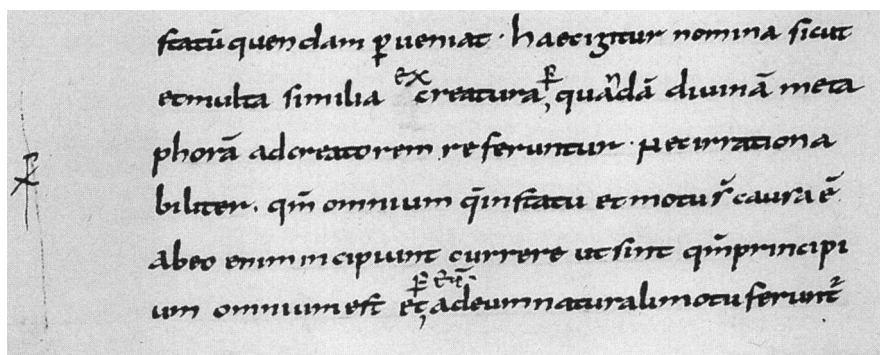 statū quendam ꝑueniat · haec igitur nomina sicut
et multa similia ex creatura ꝑ quãdã diuinã meta
phorã ad creatorem referuntur · Nec irrationa
biliter · qm̄ omnium q̄ in statu et motu s̄ causa ē
ab eo enim incipiunt currere ut sint qm̄ principi
um omnium est et ꝑ eū · ad eum naturali motu ferunt᷑